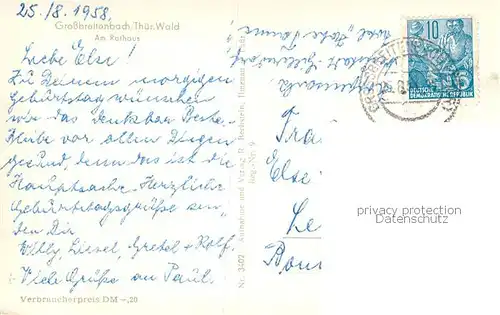 25./8. 1958.
Großbreitenbach Thür. Wald
Am Rathaus
Liebe Else!
Zu Deinem morgigen
Geburtstag wünschen
wir das denkbar Beste.
Bleibe vor allen Dingen
gesund, denn das ist die
Hauptsache. Herzliche
Geburtstagsgrüße sen-
den Dir
Willy, Liesel, Gretel + Rolf.
Viele Grüße an Paul.
Verbraucherpreis DM -,20
Nr. 3402
10
DEUTSCHE
DEMOKRATISCHE REPUBLIK
Fra
Else
Le
Bor
privacy protected
Datenschutz